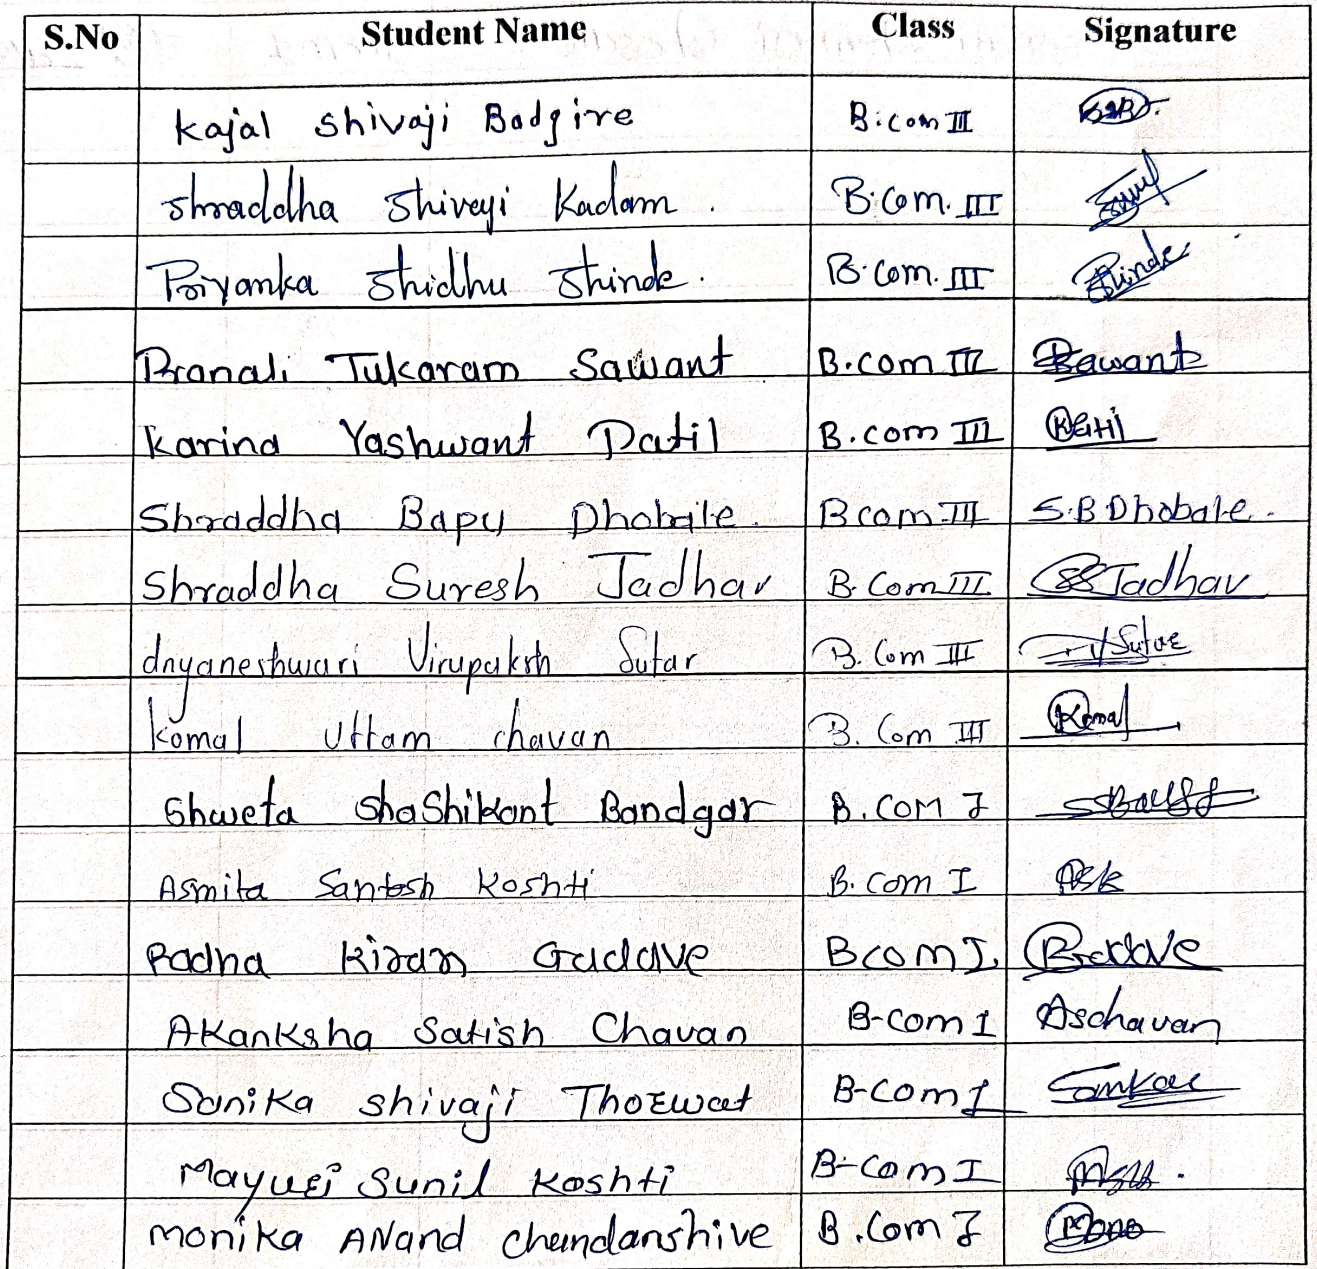 S.No Student Name Class Signature
Kajal Shivaji Badgire B.com III
Shraddha Shivaji Kadam . B.Com. III
Priyanka Shidhu Shinde . B.com. III Shinde
Pranali Tukaram Sawant B.com III Sawant
Karina Yashwant Patil B.com III
Shraddha Bapu Dhobale . Bcom III S.B Dhobale .
Shraddha Suresh Jadhav B. Com III SSJadhav
dnyaneshwari Virupaksh Sutar B. Com III Sutar
Komal Uttam chavan B. Com III Komal
Shweta ShaShikant Bandgar B.COM I
Asmita Santosh Koshti B. com I ASK
Radha Kiran Gadave Bcom I
Akanksha Satish Chavan B-com I Aschavan
Sanika Shivaji Thorwat B-Com I
Mayuri Sunil Koshti B-Com I
monika ANand chandanshive B.Com I